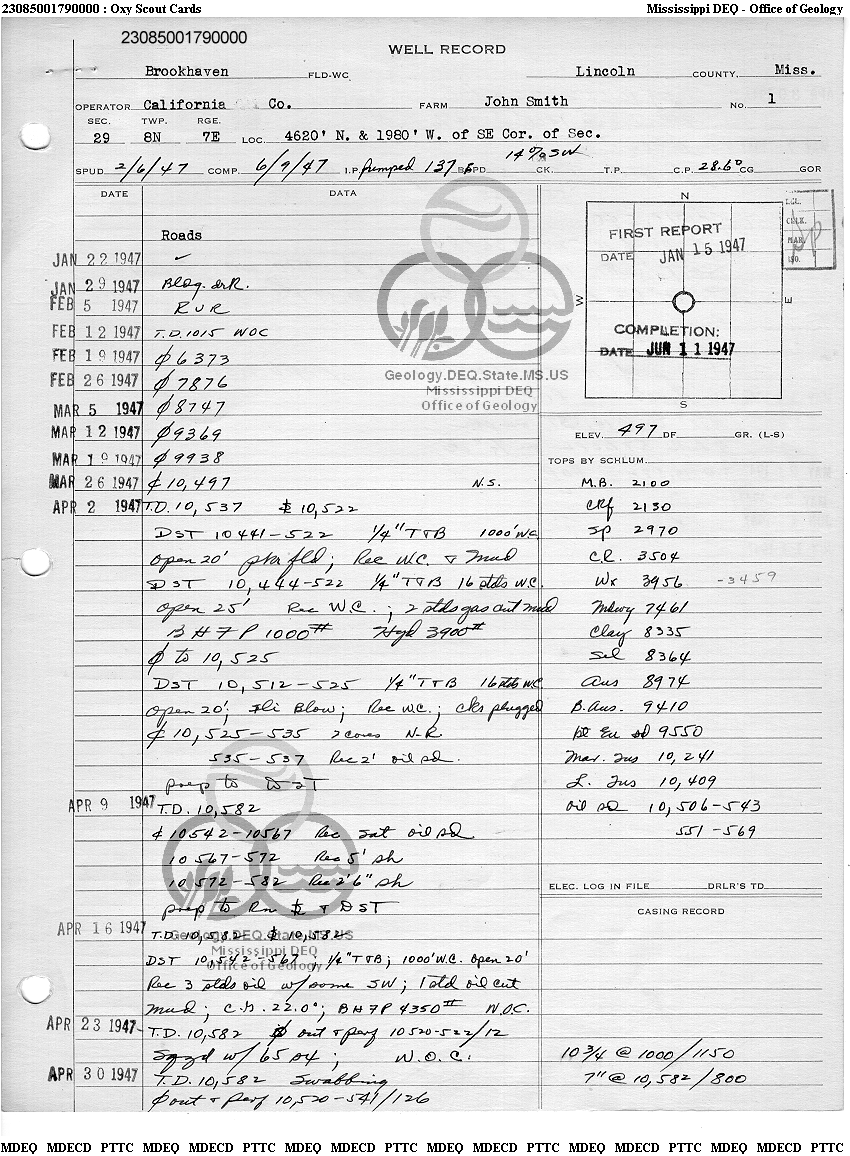 23085001790000 : Oxy Scout Cards Mississippi DEQ - Office of Geology
23085001790000
WELL RECORD
Brookhaven FLD-WC Lincoln COUNTY, Miss.
OPERATOR California Co. FARM John Smith No. 1
SEC. TWP. RGE.
29 8N 7E LOC. 4620' N. & 1980' W. of SE Cor. of Sec.
SPUD 2/6/47 COMP. 6/9/47 I.P. Pumped 137 BPD 14% SW CK. T.P. C.P. 28.6° CG GOR
DATE DATA
Roads
JAN 22 1947 ✓
JAN 29 1947 Bldg. drR.
FEB 5 1947 RUR
FEB 12 1947 T.D. 1015 WOC
FEB 19 1947 ∅ 6373
FEB 26 1947 ∅ 7876
MAR 5 1947 ∅ 8747
MAR 12 1947 ∅ 9369
MAR 19 1947 ∅ 9938
MAR 26 1947 ¢ 10,497 N.S.
APR 2 1947 T.D. 10,537 10,522
DST 10441-522 1/4" T&B 1000' W.C.
open 20' pkr fld; Rec W.C. & Mud
DST 10,444-522 1/4" T&B 16 stds W.C.
open 25' Rec W.C.; 2 stds gas cut mud
BHFP 1000# Hyd 3900#
∅ to 10,525
DST 10,512-525 1/4" T&B 16 stds W.C.
open 20'; Sli Blow; Rec W.C.; cks plugged
¢ 10,525-535 2 cores N.R.
535-537 Rec 2' oil sd.
prep to DST
APR 9 1947 T.D. 10,582
¢ 10542-10567 Rec sat oil sd
10567-572 Rec 5' sh
10572-582 Rec 2'6" sh
prep to Rn & DST
APR 16 1947 T.D. 10,582 10,582
DST 10,542-567; 1/4" T&B; 1000' W.C. open 20'
Rec 3 stds oil w/some SW; 1 std oil cut
Mud; C.G. 22.0°; BHFP 4350# W.O.C.
APR 23 1947 T.D. 10,582 ∅ out & perf 10520-522/12
Sqzd w/ 65 ; W.O.C.
APR 30 1947 T.D. 10,582 Swabbing
∅ out & Perf 10,520-541/126
N
W
E
S
FIRST REPORT
DATE JAN 15 1947
COMPLETION:
DATE JUN 11 1947
MAR.
ELEV. 497 DF GR. (L-S)
TOPS BY SCHLUM.
M.B. 2100
CRf 2130
Sp 2970
C.R. 3504
Wx 3956 -3459
Mdwy 7461
Clay 8335
Sel 8364
Aus 8974
B. Aus. 9410
Eu sd 9550
Mar. Tus 10,241
L. Tus 10,409
oil sd 10,506-543
551-569
ELEC. LOG IN FILE DRLR'S TD
CASING RECORD
10 3/4 @ 1000/1150
7" @ 10,582/800
Geology.DEQ.State.MS.US
Mississippi DEQ
Office of Geology
Geology.DEQ.State.MS.US
Mississippi DEQ
Office of Geology
MDEQ MDECD PTTC MDEQ MDECD PTTC MDEQ MDECD PTTC MDEQ MDECD PTTC MDEQ MDECD PTTC MDEQ MDECD PTTC